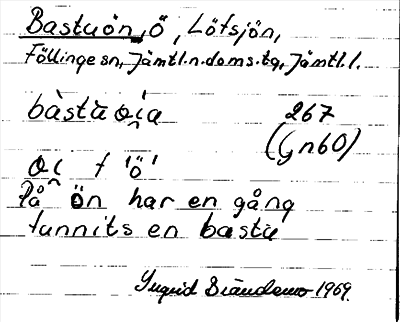 Bastuön, ö, Lötsjön,
Föllinge sn, Jämtl.n.doms.tg, Jämtl.l.
bàstù o͜ia 267
(Gn60)
o͜i f 'ö'
På ön har en gång
funnits en bastu
Ingrid 1969.